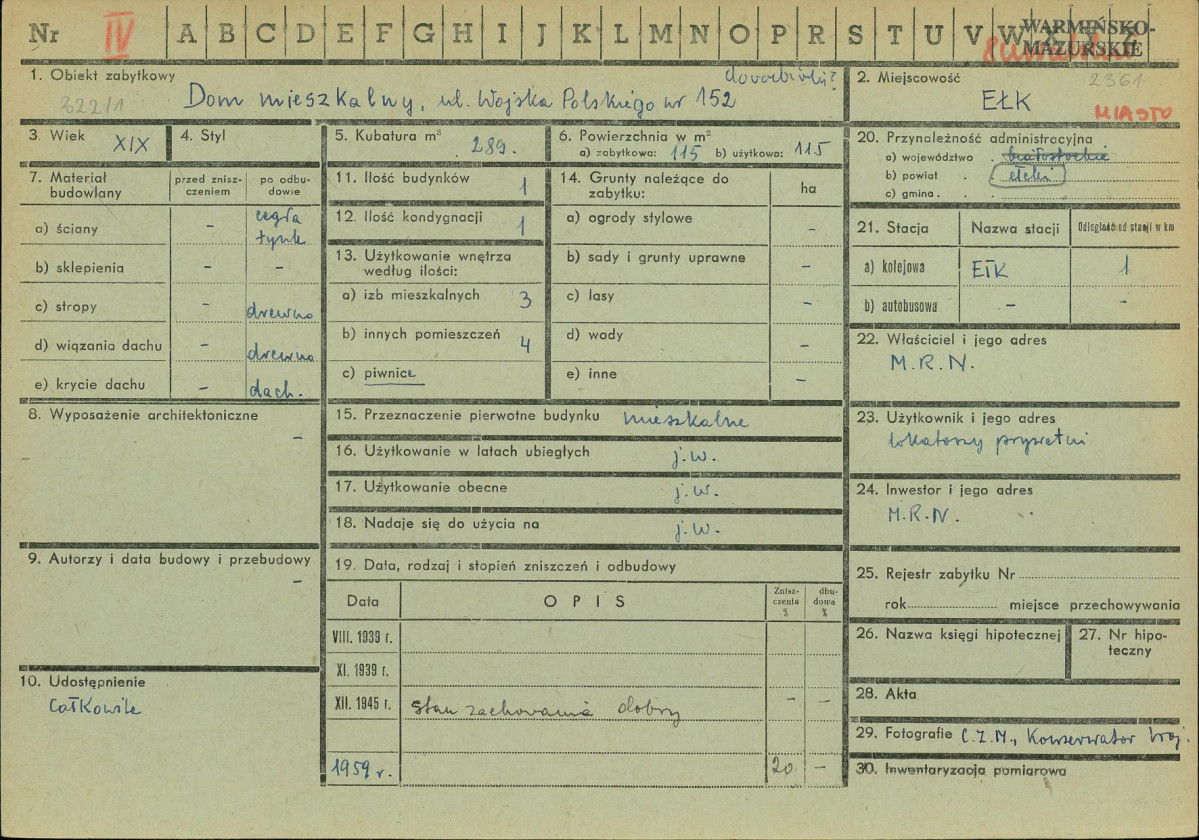 Nr IV A B C D E F G H I J K L M N O P R S T U V W X Y Z
WARMIŃSKO-
MAZURSKIE
1. Obiekt zabytkowy
322/1
Dom mieszkalny, ul. Wojska Polskiego nr 152
2. Miejscowość
2361
EŁK
MIASTO
3. Wiek XIX
4. Styl
5. Kubatura m³ 289.
6. Powierzchnia w m²
a) zabytkowa: 115 b) użytkowa: 115
7. Materiał budowlany
przed zniszczeniem
po odbudowie
a) ściany – cegła tynk
b) sklepienia – –
c) stropy – drewno
d) wiązania dachu – drewno
e) krycie dachu – dach.
8. Wyposażenie architektoniczne
–
9. Autorzy i data budowy i przebudowy
–
10. Udostępnienie
całkowite
11. Ilość budynków 1
12. Ilość kondygnacji 1
13. Użytkowanie wnętrza
według ilości:
a) izb mieszkalnych 3
b) innych pomieszczeń 4
c) piwnice
14. Grunty należące do
zabytku:
ha
a) ogrody stylowe –
b) sady i grunty uprawne –
c) lasy –
d) wody –
e) inne –
15. Przeznaczenie pierwotne budynku mieszkalne
16. Użytkowanie w latach ubiegłych j.w.
17. Użytkowanie obecne j.w.
18. Nadaje się do użycia na j.w.
19. Data, rodzaj i stopień zniszczeń i odbudowy
Data
OPIS
Znisz-
czenia
%
dbu-
dowa
%
VIII. 1939 r.
XI. 1939 r.
XII. 1945 r. stan zachowania dobry – –
1959 r. 20 –
20. Przynależność administracyjna
a) województwo . białostockie
b) powiat . ełcki
c) gmina .
21. Stacja
Nazwa stacji
Odległość od stacji w km
a) kolejowa EŁK 1
b) autobusowa – –
22. Właściciel i jego adres
M.R.N.
23. Użytkownik i jego adres
lokatorzy prywatni
24. Inwestor i jego adres
M.R.N.
25. Rejestr zabytku Nr
rok miejsce przechowywania
26. Nazwa księgi hipotecznej
27. Nr hipo-
teczny
28. Akta
29. Fotografie C.I.M., Konserwator Woj.
30. Inwentaryzacja pomiarowa